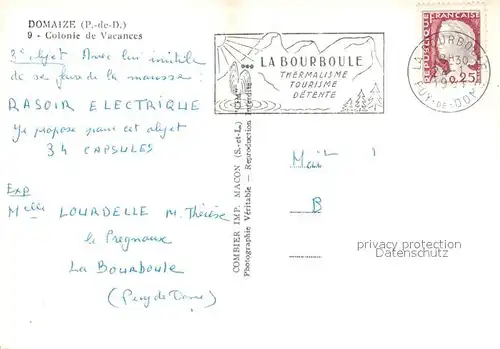 DOMAIZE (P.-de-D.)
9 - Colonie de Vacances
3e objet Avec lui inutile
de se faire de la mousse :
RASOIR ELECTRIQUE
Je propose pour cet objet
34 CAPSULES
Exp
Melle LOURDELLE M. Thérèse
La Bourboule
(Puy de Dome)
COMBIER IMP. MACON (S.-et-L.) "CIM"
Photographie Véritable - Reproduction Interdite
LA BOURBOULE
THERMALISME
TOURISME
DÉTENTE
REPUBLIQUE
FRANÇAISE
0,25
LA BOURBOULE
PUY-DE-DOME
B
privacy protection
Datenschutz